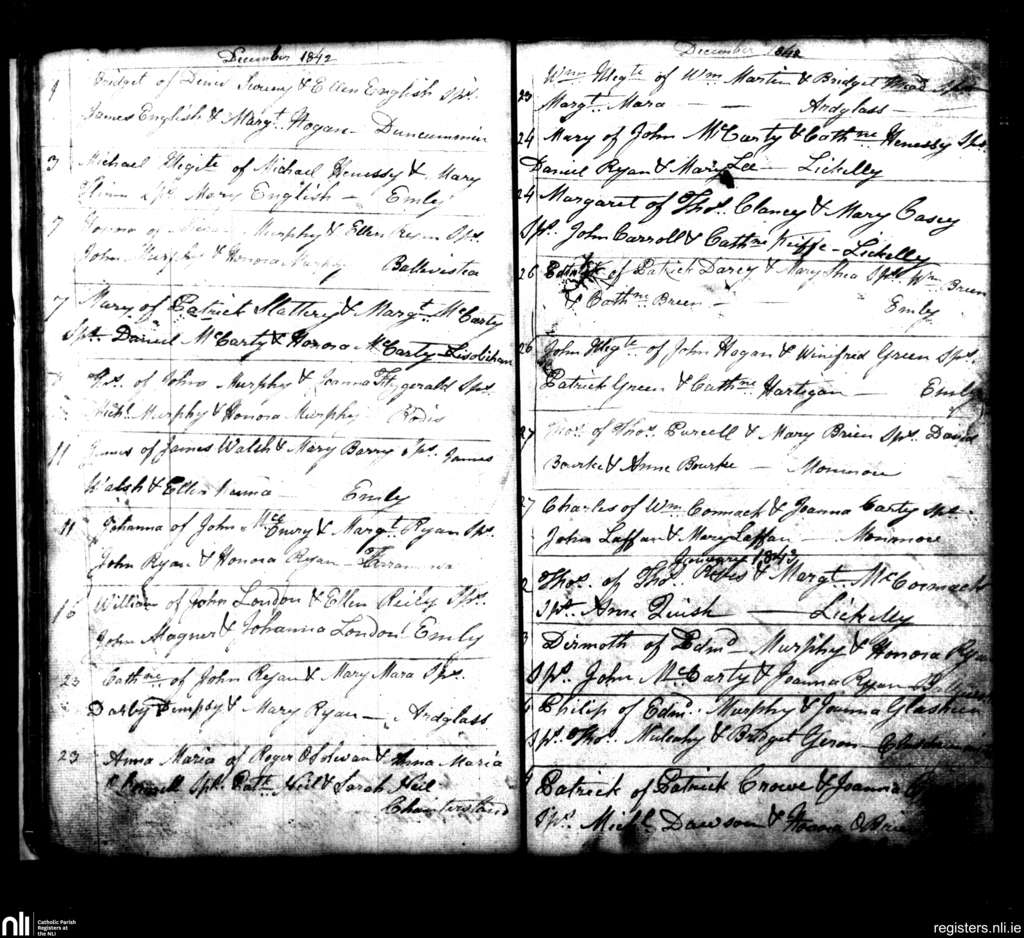 December 1842
1 Bridget of Denis & Ellen English Sps.
James English & Margt. Hogan - Duncummin
3 Michael Illegite of Michael Henessy & Mary
Sps. Mary English - Emly
7 Honora of Murphy & Ellen Ryan Sps.
John Murphy & Honora Murphy Ballivistea
7 Mary of Patrick Slattery & Margt. McCarty
Sps. Daniel McCarty & Honora McCarty
Thos. of John Murphy & Joanna Fitzgerald Sps.
Michl. Murphy & Honora Murphy
11 James of James Walsh & Mary Barry Sps. James
Walsh & Ellen - Emly
11 Johanna of John McEnery & Margt. Ryan Sps.
John Ryan & Honora Ryan -
16 William of John London & Ellen Reily Sps.
John Magner & Johanna London Emly
23 Cathne of John Ryan & Mary Mara Sps.
Darby Dempsy & Mary Ryan - Ardglass
23 Anna Maria of Roger OSolivan & Anna Maria
Sps. Patk. Neil & Sarah Neil
December 1842
23 Wm Illegte of Wm Martin & Bridget Mead Sps
Margt. Mara - - Ardglass -
24 Mary of John McCarty & Cathne Henessy Sps.
Daniel Ryan & Mary Lee - Lickelly
24 Margaret of Thos. Clancy & Mary Casey
Sps. John Carroll & Cathne Keiffe - Lickelly
26 of Patrick Darcy & Mary Shea Sps. Wm Brien
& Cathne Brien - - Emly
26 John Illegte of John Hogan & Winifred Green Sps.
Patrick Green & Cathne Hartigan - Emly
27 Thos. of Thos. Purcell & Mary Brien Sps. David
Bourke & Anne Bourke - Monmore
27 Charles of Wm Cormack & Joanna Carty Sps
John Laffan & Mary Laffan - Monmore
January 1843
2 Thos. of Thos. & Margt. McCormack
Sps. Anne Quish - Lickelly
3 Dirmoth of Edmd Murphy & Honora Ryan
Sps. John McCarty & Joanna Ryan
4 Philip of Edmd. Murphy & Joanna
Sps. Thos. Mulcahy & Bridget
4 Patrick of Patrick Crowe & Joanna
Sps. Michl. Dawson & OBrien
nli Catholic Parish
Registers at
the NLI
registers.nli.ie